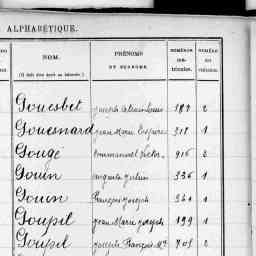 ALPHABÉTIQUE.
NOM.
(Il doit être écrit en bâtarde.)
PRÉNOMS
ET SURNOMS.
NUMÉROS
NUMÉRO
Gouesbet Joseph 2
Gouesnard Jean Marie 318 1
Gougé Emmanuel Victor 916 2
Gouin Auguste Julien 336 1
Gouin François Joseph 361 1
Goupil Jean Marie Joseph 199 1
Goupil Joseph François Mie 703 2